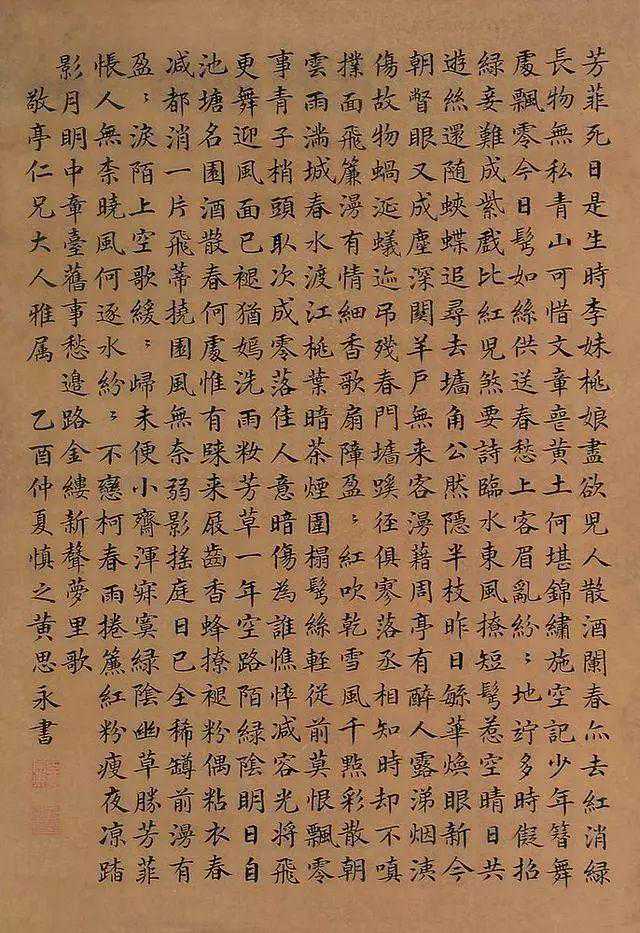 芳菲死日是生時李妹桃娘盡欲兒人散酒闌春亦去紅消綠
長物無私青山可惜文章喪黃土何堪錦繡施空記少年簪舞
處飄零今日鬢如絲供送春愁上客眉亂紛〻地竚多時儗招
綠妾難成紫戲比紅兒煞要詩臨水東風撩短鬢惹空晴日共
遊絲還随蛺蝶追尋去墻角公然隱半枝昨日緐華煥眼新今
朝瞥眼又成塵深関羊戶無来客漫藉周亭有醉人露涕烟洟
傷故物蝸涎蟻迹吊殘春門墻蹊径俱寥落丞相知時却不嗔
撲面飛簾漫有情細香歌扇障盈〻紅吹乾雪風千點彩散朝
雲雨滿城春水渡江桃葉暗茶煙圍榻鬢絲輕従前莫恨飄零
事青子梢頭取次成零落佳人意暗傷為誰憔悴减容光將飛
更舞迎風面已褪猶嫣洗雨妝芳草一年空路陌綠陰明日自
池塘名園酒散春何處惟有踈来屐齒香蜂撩褪粉偶粘衣春
减都消一片飛蒂撓園風無奈弱影搖庭日已全稀罇前漫有
盈〻淚陌上空歌緩〻歸未便小齋渾寂寞綠陰幽草勝芳菲
悵人無柰曉風何逐水紛〻不戀柯春雨捲簾紅粉瘦夜凉踏
影月明中章臺舊事愁邊路金縷新聲夢里歌
敬亭仁兄大人雅属 乙酉仲夏慎之黃思永書